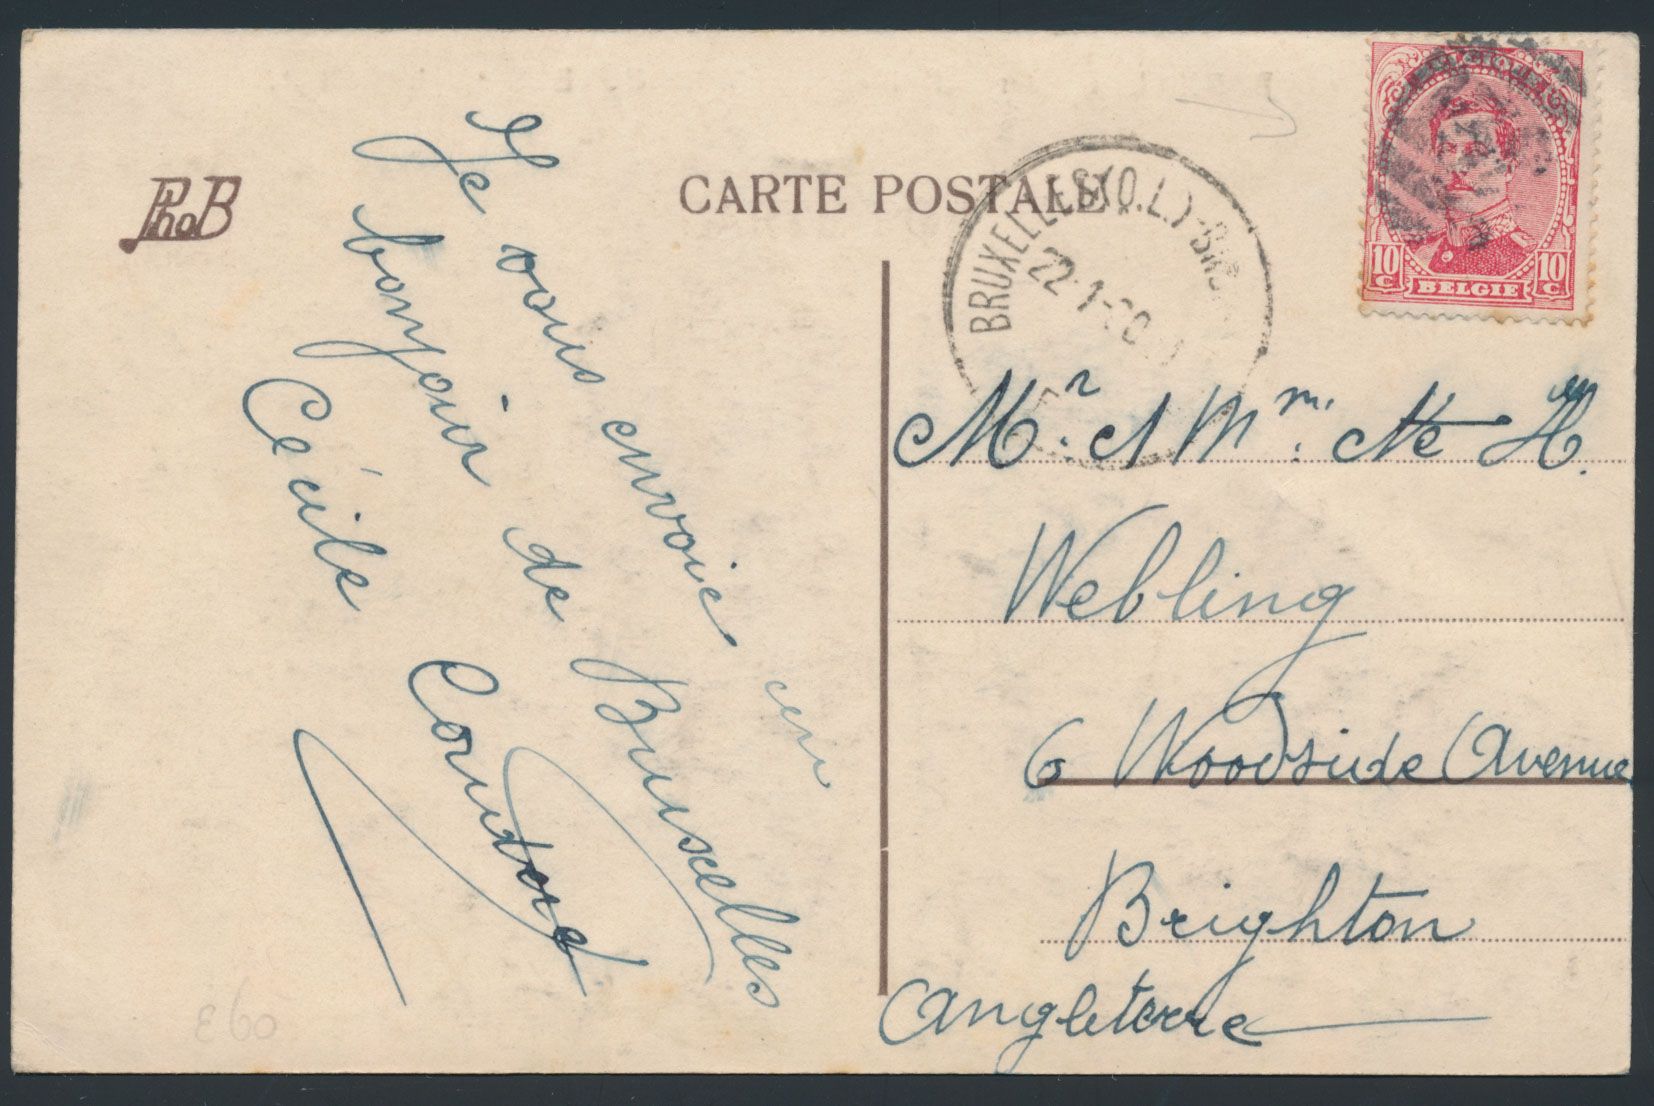 PhoB
CARTE POSTALE
BRUXELLES (Q.L.)
22-1-20
BELGIQUE
10 c
10 c
BELGIE
Je vous envoie un
bonjour de Bruxelles
Cécile
Mr. et Mme. H.
Webling
6 Woodside Avenue
Brighton
Angleterre
£60